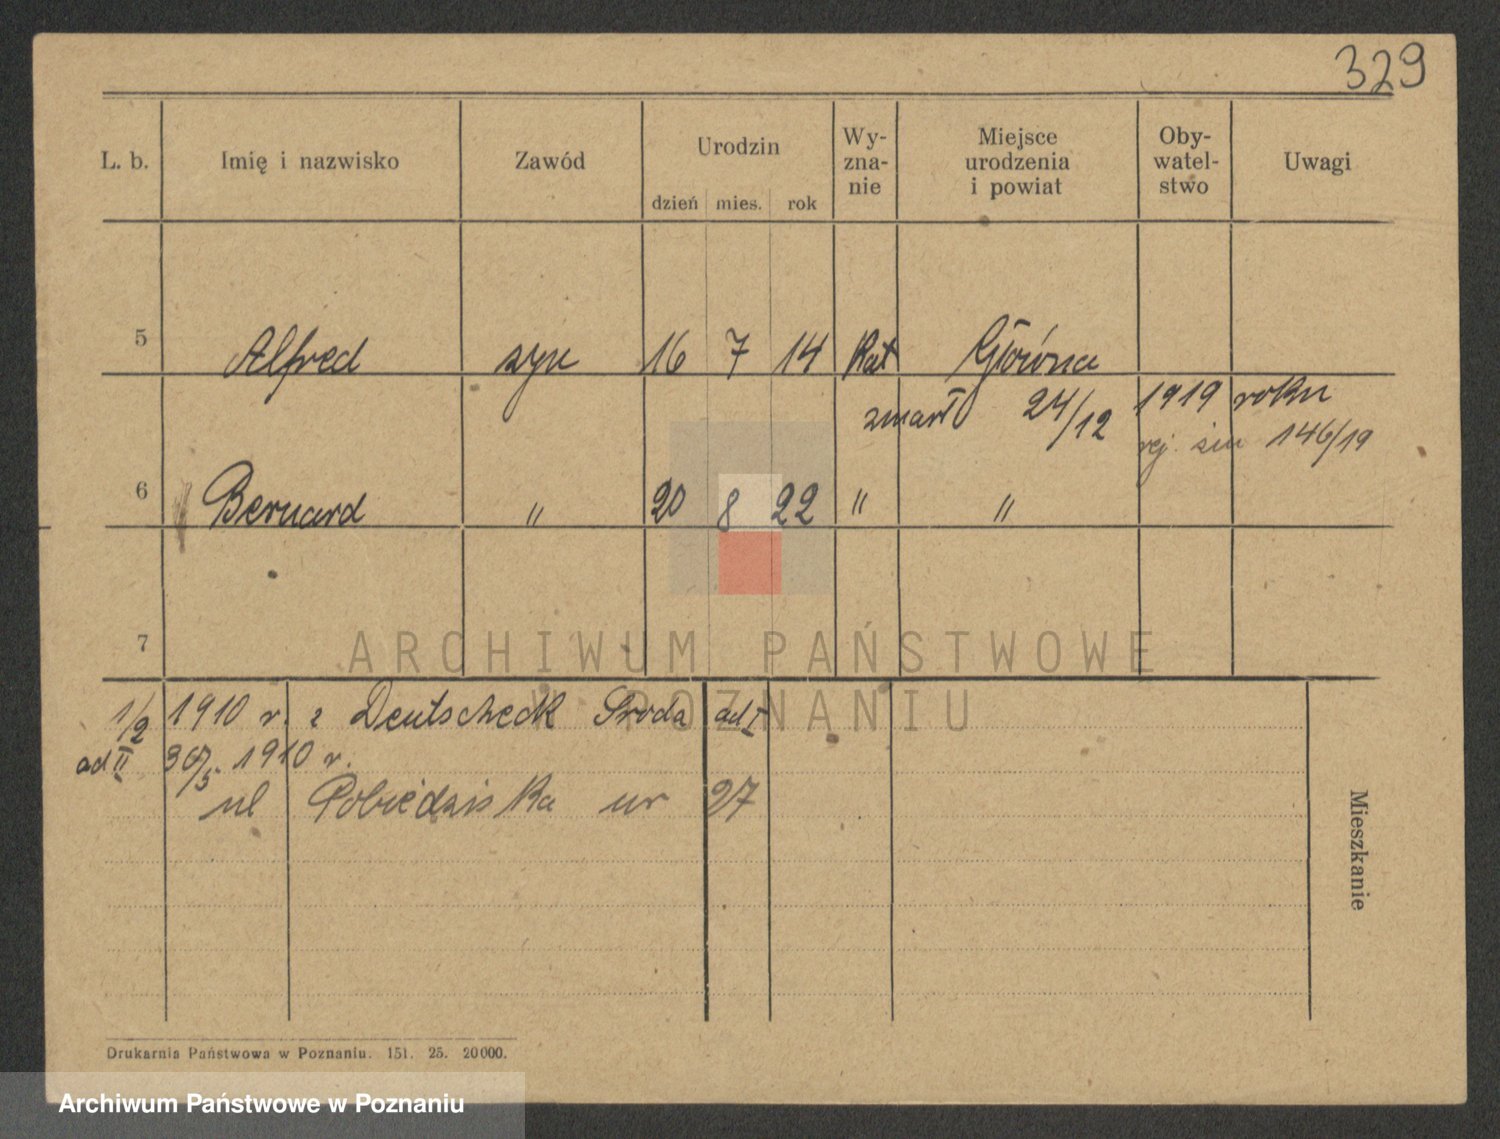 329
L. b. Imię i nazwisko Zawód Urodzin Wy-zna-nie Miejsce urodzenia i powiat Oby-watel-stwo Uwagi
dzień mies. rok
5 Alfred syn 16 7 14 Kat Główna
zmarł 24/12 1919 roku
rej. śm 146/19
6 Bernard " 20 8 22 " "
7
ARCHIWUM PAŃSTWOWE
W POZNANIU
1/2 1910 r. z Deutscheck Sroda ad I
ad II 30/5. 1910 r.
ul Pobiedziska nr 27
Mieszkanie
Drukarnia Państwowa w Poznaniu. 151. 25. 20000.
Archiwum Państwowe w Poznaniu